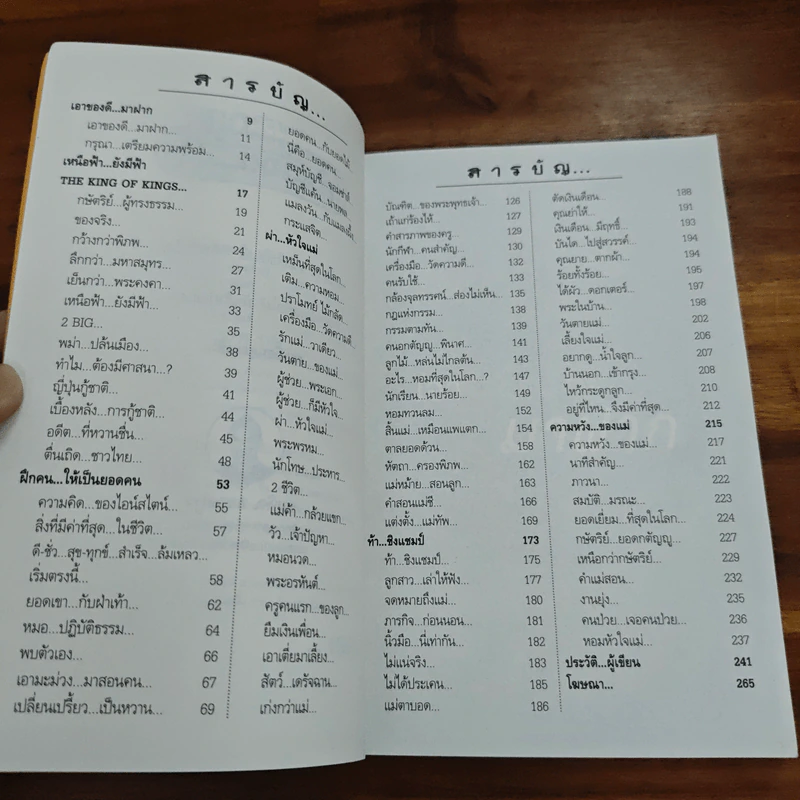 สารบัญ...
เอาของดี...มาฝาก 9
เอาของดี...มาฝาก... 11
กรุณา...เตรียมความพร้อม... 14
เหนือฟ้า...ยังมีฟ้า
THE KING OF KINGS... 17
กษัตริย์...ผู้ทรงธรรม... 19
ของจริง... 21
กว้างกว่าพิภพ... 24
ลึกกว่า...มหาสมุทร... 27
เย็นกว่า...พระคงคา... 31
เหนือฟ้า...ยังมีฟ้า... 33
2 BIG... 35
พม่า...ปล้นเมือง... 38
ทำไม...ต้องมีศาสนา...? 39
ญี่ปุ่นกู้ชาติ... 41
เบื้องหลัง...การกู้ชาติ... 44
อดีต...ที่หวานชื่น... 45
ตื่นเถิด...ชาวไทย... 48
ฝึกคน...ให้เป็นยอดคน 53
ความคิด...ของไอน์สไตน์... 55
สิ่งที่มีค่าที่สุด...ในชีวิต... 57
ดี-ชั่ว...สุข-ทุกข์...สำเร็จ...ล้มเหลว...
เริ่มตรงนี้... 58
ยอดเขา...กับฝ่าเท้า... 62
หมอ...ปฏิบัติธรรม... 64
พบตัวเอง... 66
เอามะม่วง...มาสอนคน... 67
เปลี่ยนเปรี้ยว...เป็นหวาน... 69
ยอดคน...กับยอดไม้...
นี่คือ...ยอดคน...
สมุห์บัญชี...จอมซาล์
บัญชีแค้น...นายพล
แมลงวัน...กับแมลงผึ้ง
กระแสจิต...
ผ่า...หัวใจแม่
เหม็นที่สุดในโลก...
เติม...ความหอม...
ปราโมทย์ ไม้กลัด...
เครื่องมือ...วัดความดี
รักแม่...วาเดียว...
วันตาย...ของแม่...
ผู้ช่วย...พระเอก...
ผู้ช่วย...ก็มีหัวใจ...
ผ่า...หัวใจแม่...
พระพรหม...
นักโทษ...ประหาร...
2 ชีวิต...
แม่ค้า...กล้วยแขก...
วัว...เจ้าปัญหา...
หมอนวด...
พระอรหันต์...
ครูคนแรก...ของลูก...
ยืมเงินเพื่อน...
เอาเตี่ยมาเลี้ยง...
สัตว์...เดรัจฉาน...
เก่งกว่าแม่...
สารบัญ...
บัณฑิต...ของพระพุทธเจ้า... 126
เถ้าแก่ร้องไห้... 127
คำสารภาพของครู... 129
นักกีฬา...คนสำคัญ... 130
เครื่องมือ...วัดความดี... 132
คนรับใช้... 133
กล้องจุลทรรศน์...ส่องไม่เห็น... 135
กฎแห่งกรรม... 138
กรรมตามทัน... 139
คนอกตัญญู...พินาศ... 141
ลูกไม้...หล่นไม่ไกลต้น... 143
อะไร...หอมที่สุดในโลก...? 147
นักเรียน...นายร้อย... 149
หอมทวนลม... 152
สิ้นแม่...เหมือนแพแตก... 154
ตาลยอดด้วน... 158
หัตถา...ครองพิภพ... 162
แม่หม้าย...สอนลูก... 163
คำสอนแม่ชี... 166
แต่งตั้ง...แม่ทัพ... 169
ท้า...ชิงแชมป์ 173
ท้า...ชิงแชมป์... 175
ลูกสาว...เล่าให้ฟัง... 177
จดหมายถึงแม่... 180
ภารกิจ...ก่อนนอน... 181
นิ้วมือ...นี่เท่ากัน... 182
ไม่แน่จริง... 183
ไม่ได้ประเคน... 185
แม่ตาบอด... 186
ตัดเงินเดือน... 188
คุณย่าไห้... 191
เงินเดือน...มีฤทธิ์... 193
บันได...ไปสู่สวรรค์... 194
คุณยาย...ตากผ้า... 194
ร้อยทั้งร้อย... 195
ได้ผัว...ดอกเตอร์... 197
พระในบ้าน... 198
วันตายแม่... 202
เลี้ยงใจแม่... 206
อยากดู...น้ำใจลูก... 207
บ้านนอก...เข้ากรุง... 208
ไหว้กระดูกลูก... 210
อยู่ที่ไหน...จึงมีค่าที่สุด... 212
ความหวัง...ของแม่ 215
ความหวัง...ของแม่... 217
นาทีสำคัญ... 221
ภาวนา... 222
สมบัติ...มรณะ... 223
ยอดเยี่ยม...ที่สุดในโลก... 224
กษัตริย์...ยอดกตัญญู... 227
เหนือกว่ากษัตริย์... 229
คำแม่สอน... 232
งานยุ่ง... 235
คนป่วย...เจอคนป่วย... 236
หอมหัวใจแม่... 237
ประวัติ...ผู้เขียน 241
โฆษณา... 265